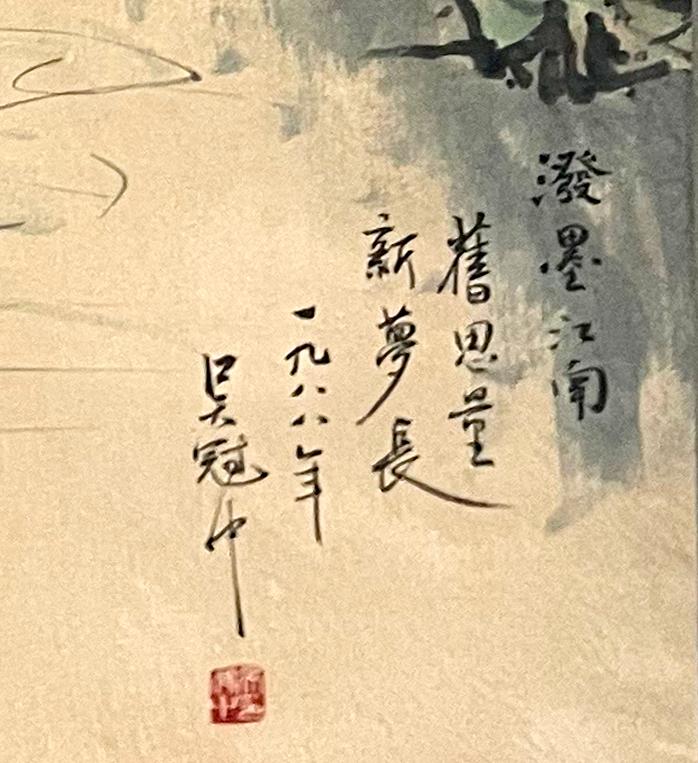 潑墨江南
舊思量
新夢長
一九八八年
吳冠中